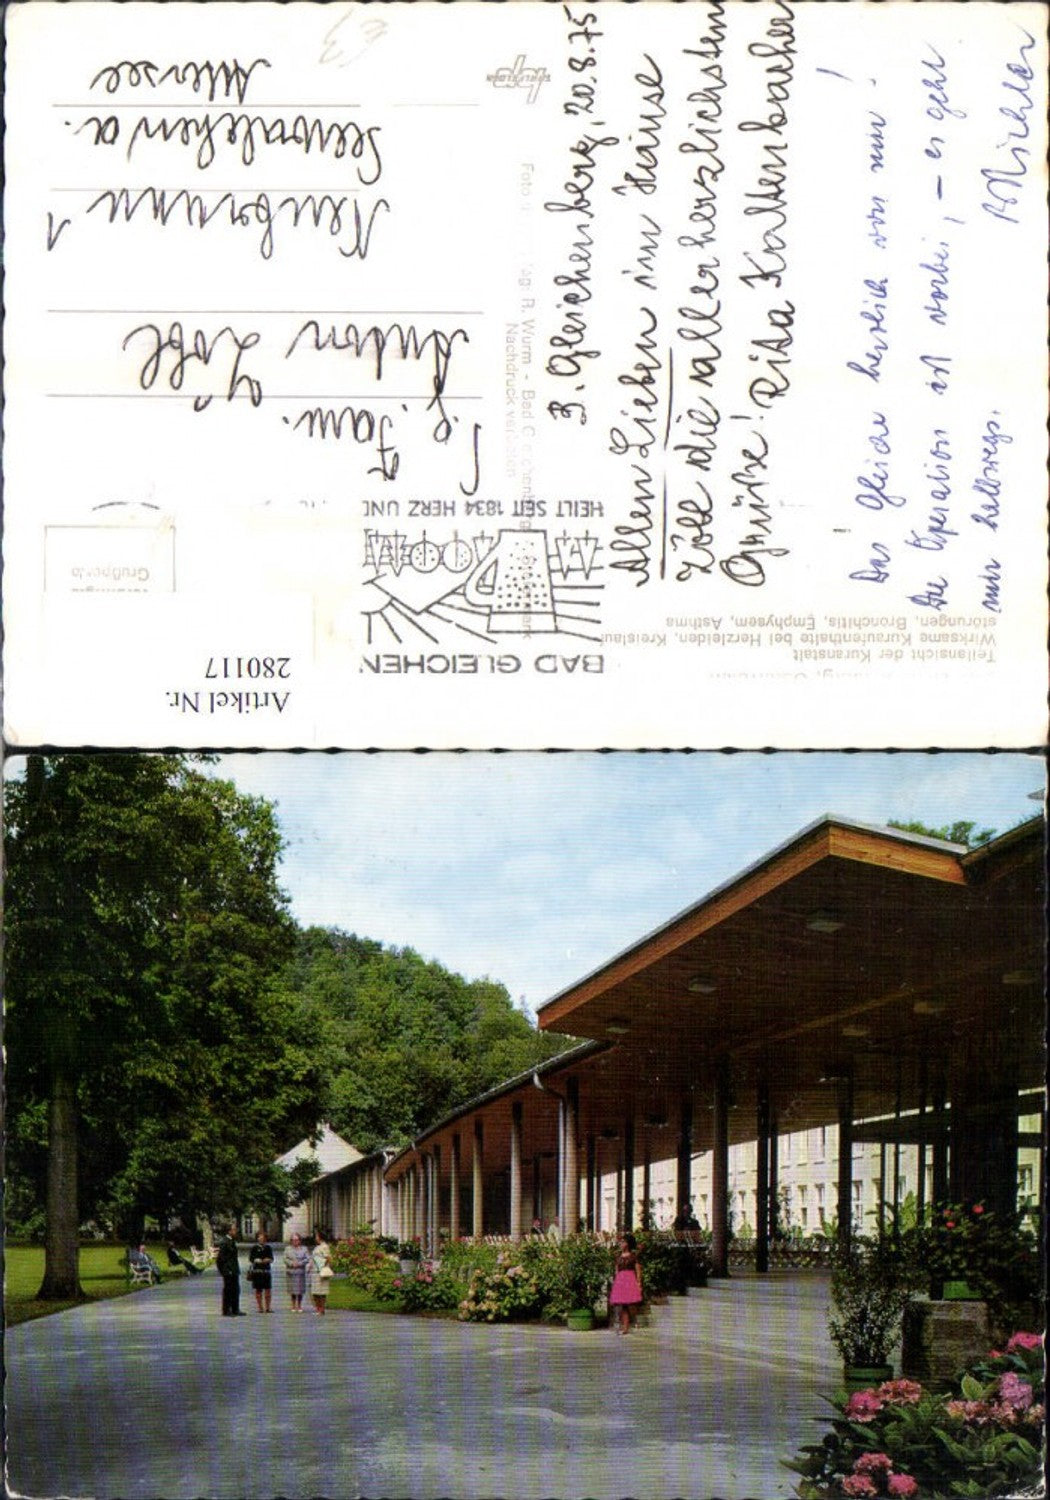 Teilansicht der Kuranstalt
Wirksame Kuraufenthalte bei Herzleiden, Kreislauf-
störungen, Bronchitis, Emphysem, Asthma
B. Gleichenberg, 20.8.75
Allen Lieben im Hause
Löbl die allerherzlichsten
Grüße! Rita Kaltenbacher
Das Gleiche herzlich von mir!
Die Operation ist vorbei, – es geht
mir halbwegs.
BAD GLEICHEN
HEILT SEIT 1834 HERZ UND
R. Wurm - Bad
Nachdruck verboten
Artikel Nr.
280117
Fam.
Anton Löbl
Neubrunn 1
Seewalchen a.
Attersee